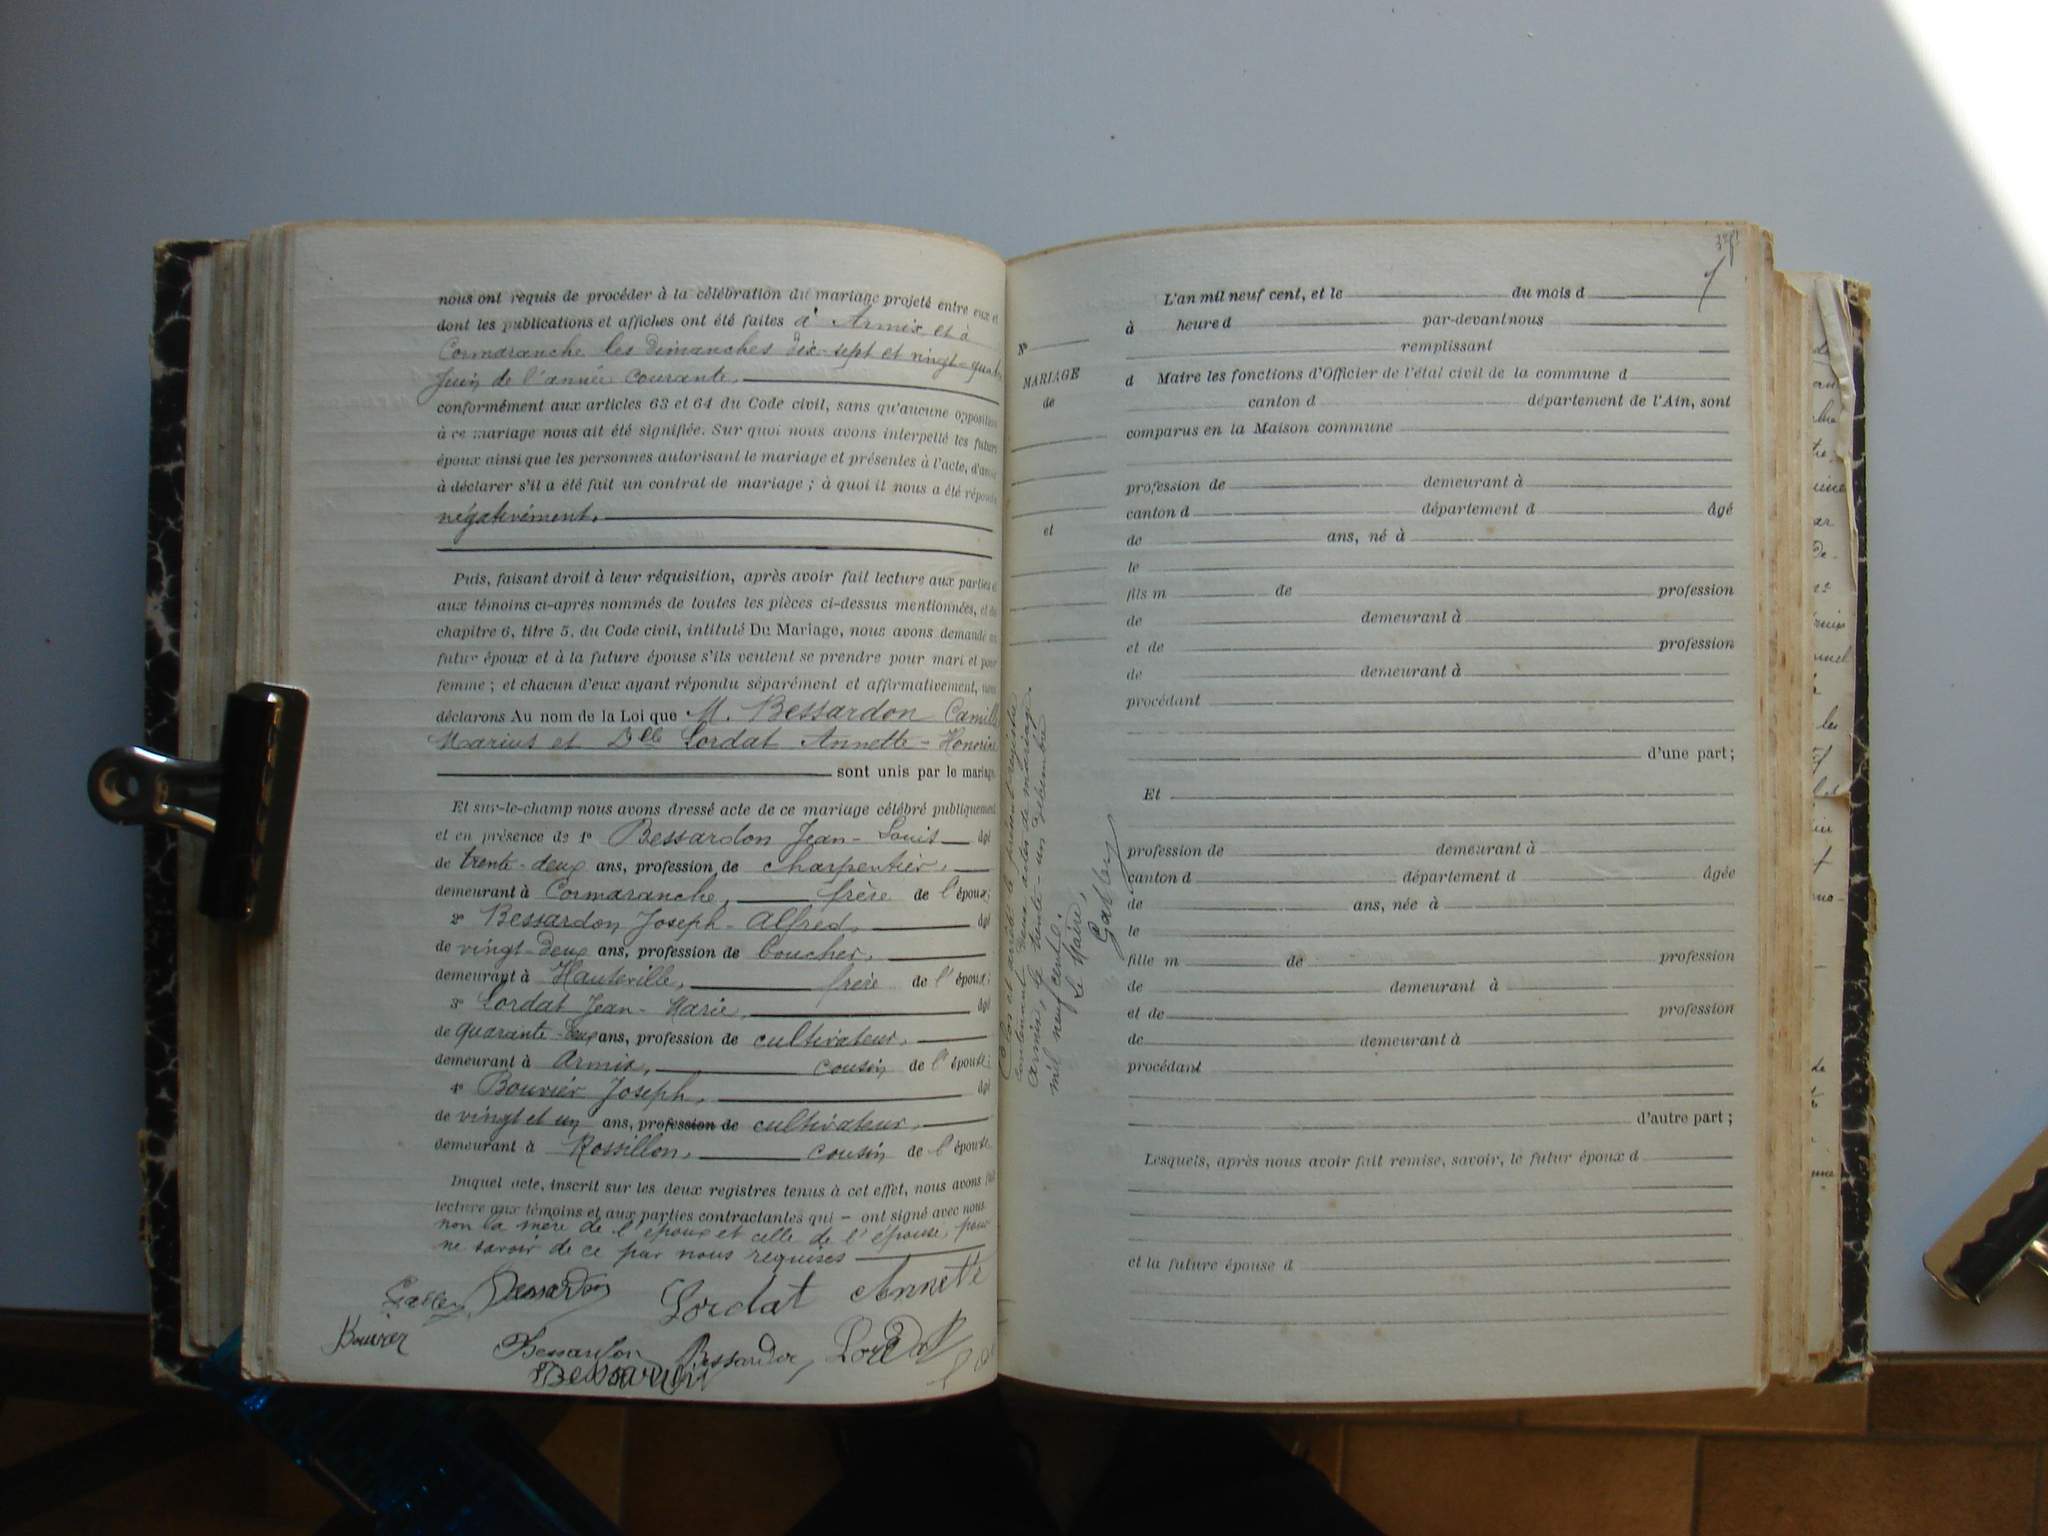 nous ont requis de procéder à la célébration du mariage projeté entre eux et
dont les publications et affiches ont été faites à Armix et à
Cormaranche les dimanches dix-sept et vingt-quatre
Juin de l'année courante.
conformément aux articles 63 et 64 du Code civil, sans qu'aucune opposition
à ce mariage nous ait été signifiée. Sur quoi nous avons interpellé les futurs
époux ainsi que les personnes autorisant le mariage et présentes à l'acte, d'avoir
à déclarer s'il a été fait un contrat de mariage ; à quoi il nous a été répondu
négativement.
Puis, faisant droit à leur réquisition, après avoir fait lecture aux parties et
aux témoins ci-après nommés de toutes les pièces ci-dessus mentionnées, et du
chapitre 6, titre 5, du Code civil, intitulé Du Mariage, nous avons demandé au
futur époux et à la future épouse s'ils veulent se prendre pour mari et pour
femme ; et chacun d'eux ayant répondu séparément et affirmativement, nous
déclarons Au nom de la Loi que M. Bessardon Camille
Marius et Dlle Lordat Annette-Honorine
sont unis par le mariage
Et sur-le-champ nous avons dressé acte de ce mariage célébré publiquement
et en présence de 1º Bessardon Jean-Louis âgé
de trente-deux ans, profession de charpentier,
demeurant à Cormaranche, frère de l'époux;
2º Bessardon Joseph-Alfred, âgé
de vingt-deux ans, profession de boucher,
demeurant à Hauteville, frère de l'époux;
3º Lordat Jean-Marie, âgé
de quarante-deux ans, profession de cultivateur,
demeurant à Armix, cousin de l'épouse;
4º Bouvier Joseph, âgé
de vingt et un ans, profession de cultivateur,
demeurant à Rossillon, cousin de l'épouse
Duquel acte, inscrit sur les deux registres tenus à cet effet, nous avons fait
lecture aux témoins et aux parties contractantes qui – ont signé avec nous
non la mère de l'époux et celle de l'épouse, pour
ne savoir de ce par nous requises
Galley Bessardon Lordat Annette
Bouvier Bessardon Bessardon Lordat
Bessardon
Nº
MARIAGE
de
et
Clos et arrêté le présent registre
contenant deux actes de mariage
Armix, le trente-un décembre
mil neuf cent.
Le Maire,
Galley
L'an mil neuf cent, et le du mois d
à heure d par-devant nous
remplissant
d Maire les fonctions d'Officier de l'état civil de la commune d
canton d département de l'Ain, sont
comparus en la Maison commune
profession de demeurant à
canton d département d âgé
de ans, né à
le
fils m de profession
de demeurant à
et de profession
de demeurant à
procédant
d'une part;
Et
profession de demeurant à
canton d département d âgée
de ans, née à
le
fille m de profession
de demeurant à
et de profession
de demeurant à
procédant
d'autre part ;
Lesquels, après nous avoir fait remise, savoir, le futur époux d
et la future épouse d